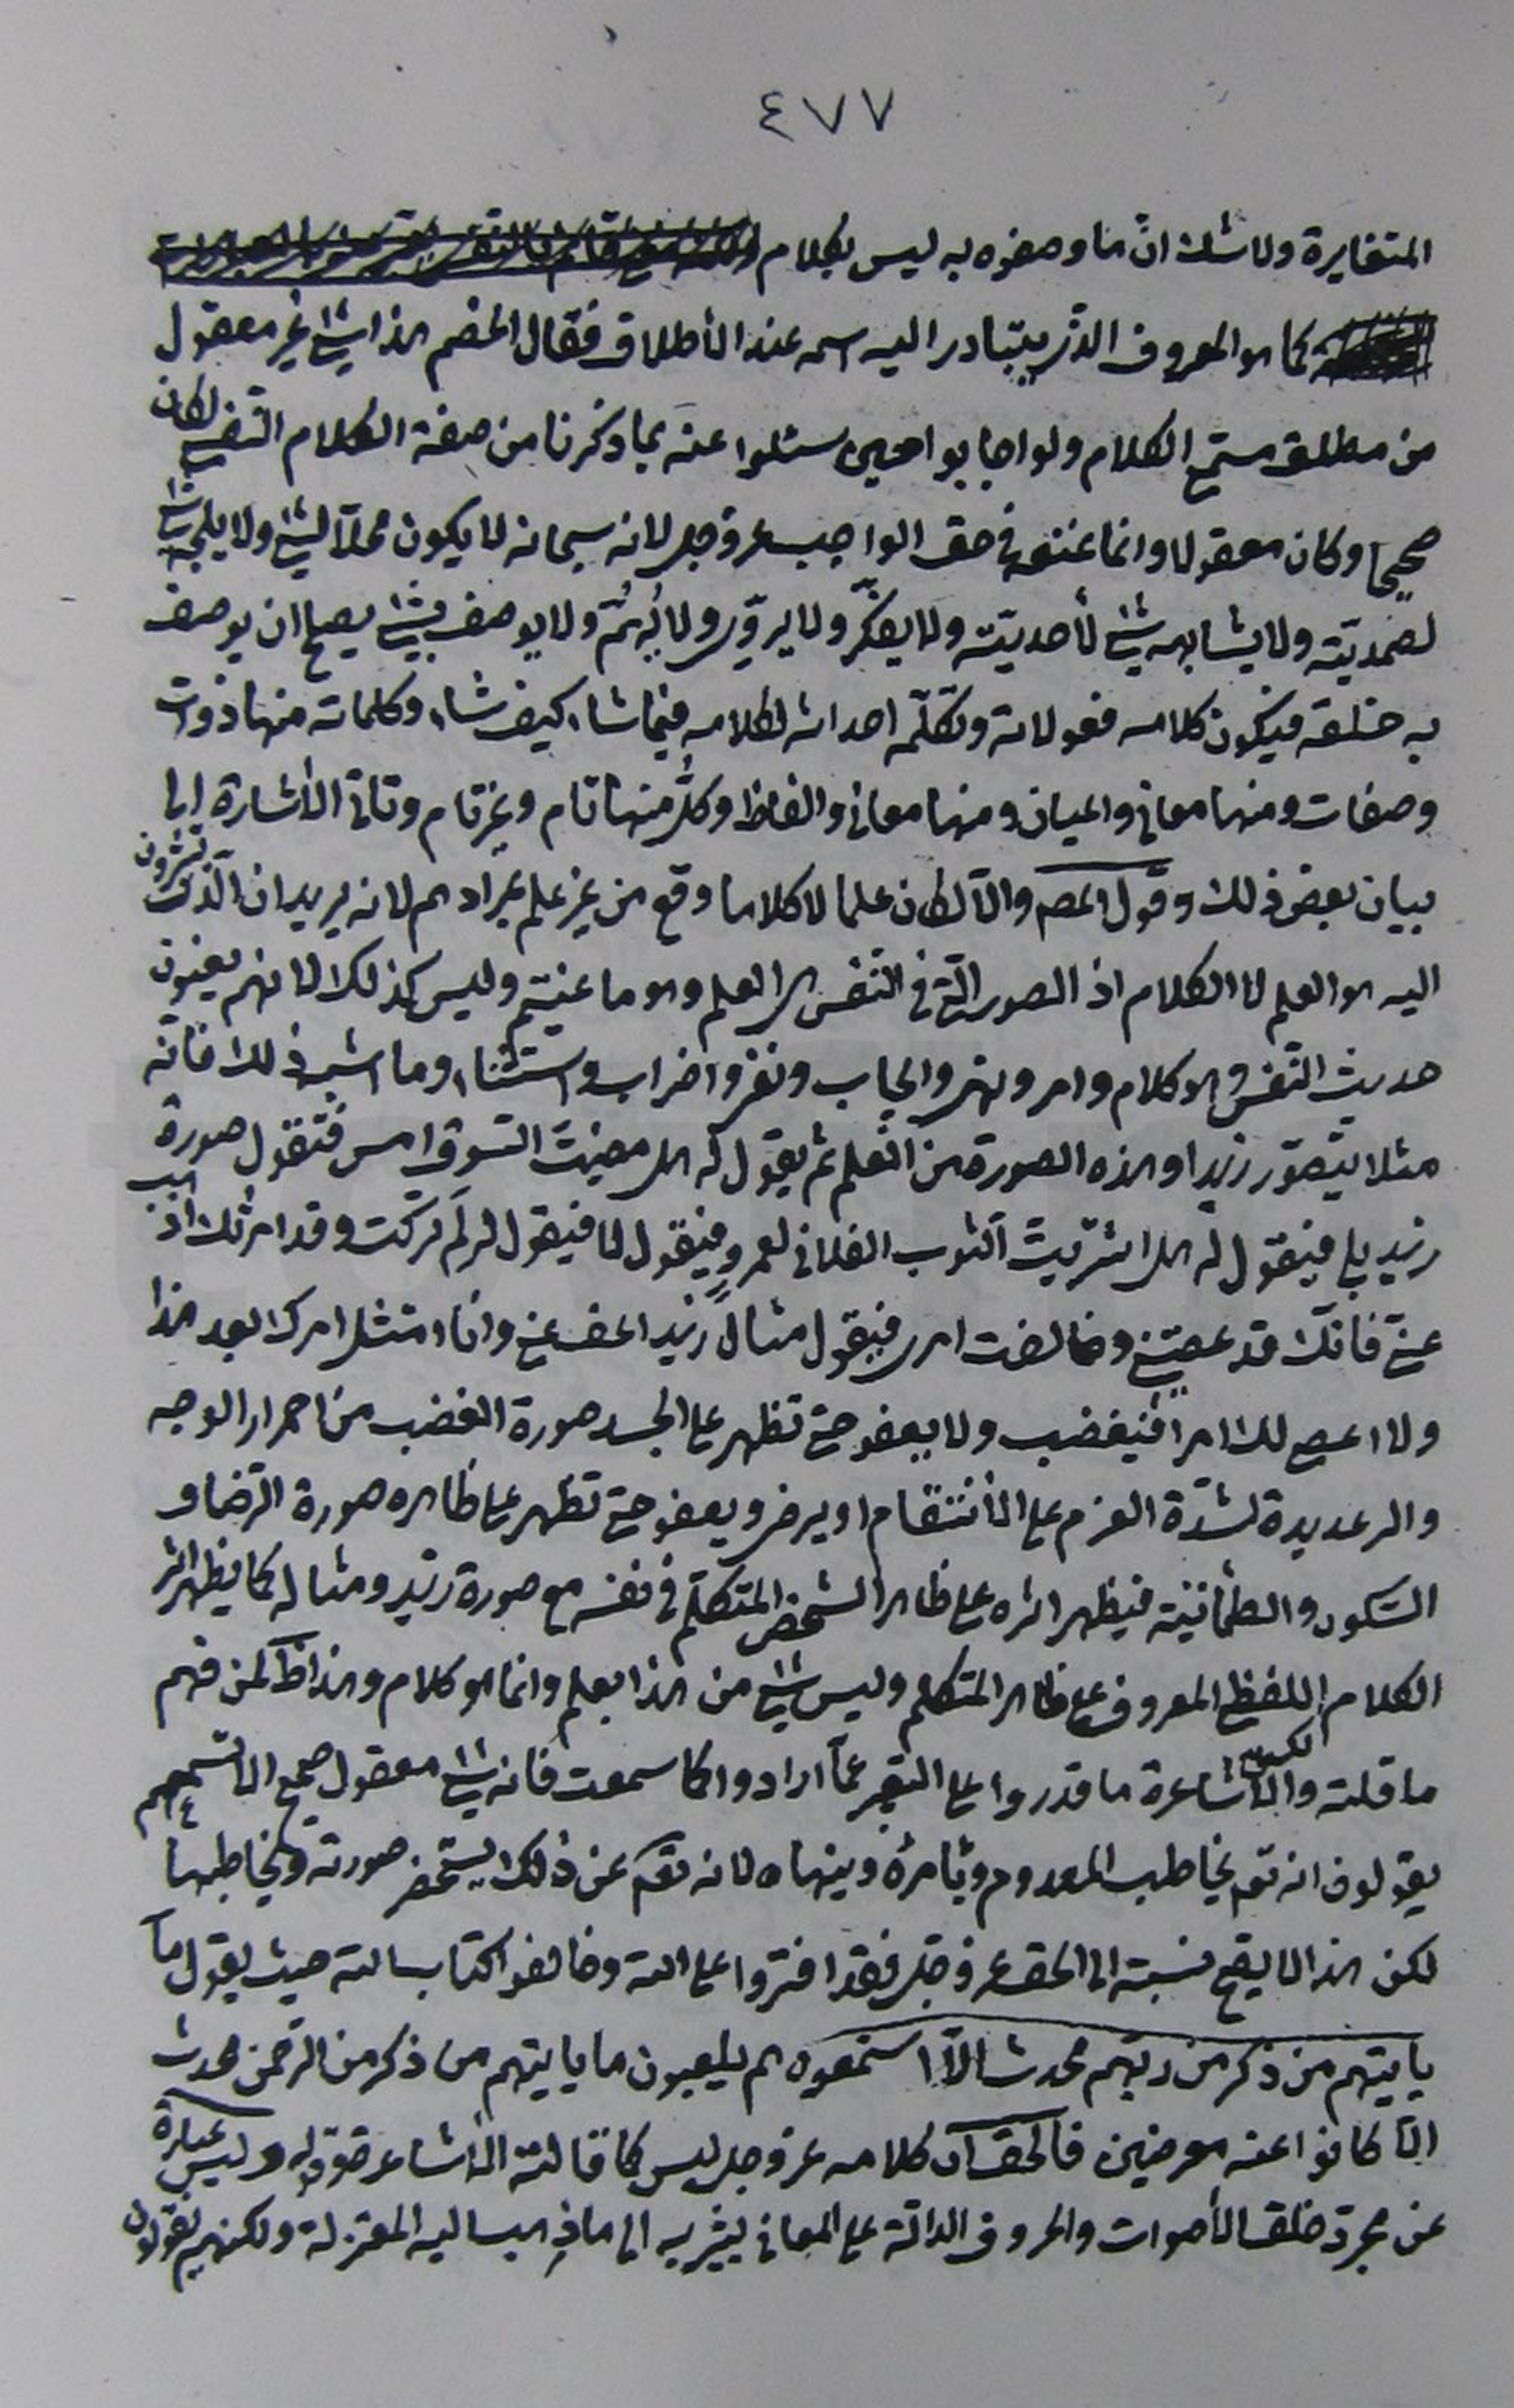 ٤٧٧
المتغايرة ولا شك انّ ما وصفوه به ليس بكلام
كما هو المعروف الذي يتبادر اليه اسمه عند الأطلاق فقال الخصم هذا شئ غير معقول
من مطلق مستمع الكلام ولو اجابوا حين سئلوا عنه بما ذكرنا من صفة الكلام النفسي لكان
صحيحا وكان معقولا وانما نمنعه في حق الواجب عز وجل لانه سبحانه لا يكون محلّا لشئ ولا يلجه شئ
لصمديّته ولا يشابهه شئ لأحديّته ولا يفكّر ولا يروّي ولا يُهُمّ ولا يوصف بشئ يصح ان يوصف
به خلقه فيكون كلامه فعولاته وتكلّمه احداثه لكلامه فيما شاء كيف شاء وكلماته منها ذوات
وصفات ومنها معاني واعيان ومنها معاني والفاظ وكلٌّ منها تام وغير تام وتاتي الأشارة الى
بيان بعض ذلك وقول المص والّا لكان علما لا كلاما وقع من غير علم بمرادهم لانه يريد ان الّذي تشيرون
اليه هو العلم لا الكلام اذ الصور الّتي في النّفس هي العلم وهو ما عنيتم وليس كذلك لانهم يعنون
حديث النّفس وهو كلام وامر ونهي وايجاب ونفي واضراب واستثناء وما اشبه ذلك فانّه
مثلا يتصوّر زيدا وهذه الصورة من العلم ثم يقول له هل مضيتَ السّوق امس فتقول صورة
زيد بلى فيقول له هل اشتريت الثوب الفلاني لعمروٍ فيقول لا فيقول لم لَم تركت وقد امرتك اذهب
عنّي فانّك قد عصيتني وخالفت امري فيقول مثالُ زيد اعف عني وانا امتثل امرك بعد هذا
ولا اعصي لك امرا فيغضب ولا يعفو حتى تظهر على الجسد صورة الغضب من احمرار الوجه
والرعديدة لشدّة العزم على الأنتقام او يرضى ويعفو حتى تظهر على ظاهره صورة الرّضا و
السّكون والطمأنينة فيظهر اثره على ظاهر الشخص المتكلّم في نفسه مع صورة زيد ومثاله كما يظهر اثر
الكلام اللفظي المعروف على ظاهر المتكلم وليس شئ من هذا بعلم وانما هو كلام وهذا ظ لمن فهم
ما قلته ولكن الأشاعرة ما قدروا على التعبير عمّا ارادوا كما سمعت فانه شئ معقول صحيح الا انهم
يقولون انه تع يخاطب المعدوم ويأمره وينهاه لانه تعالى عن ذلك يستحضر صورته ويخاطبها
لكن هذا لا يصح نسبته الى الحق عز وجل فقد افتروا على الله وخالفوا كتاب الله حيث يقول ما
يأتيهم من ذكر من ربّهم محدث الّا استمعوه وهم يلعبون ما يأتيهم من ذكر من الرّحمن محدث
الّا كانوا عنه معرضين فالحق انّ كلامه عز وجل ليس كما قالته الأشاعرة قوله وليس عبارة
عن مجرّد خلق الأصوات والحروف الدالّة على المعاني يشير به الى ما ذهب اليه المعتزلة ولكنهم يقولون